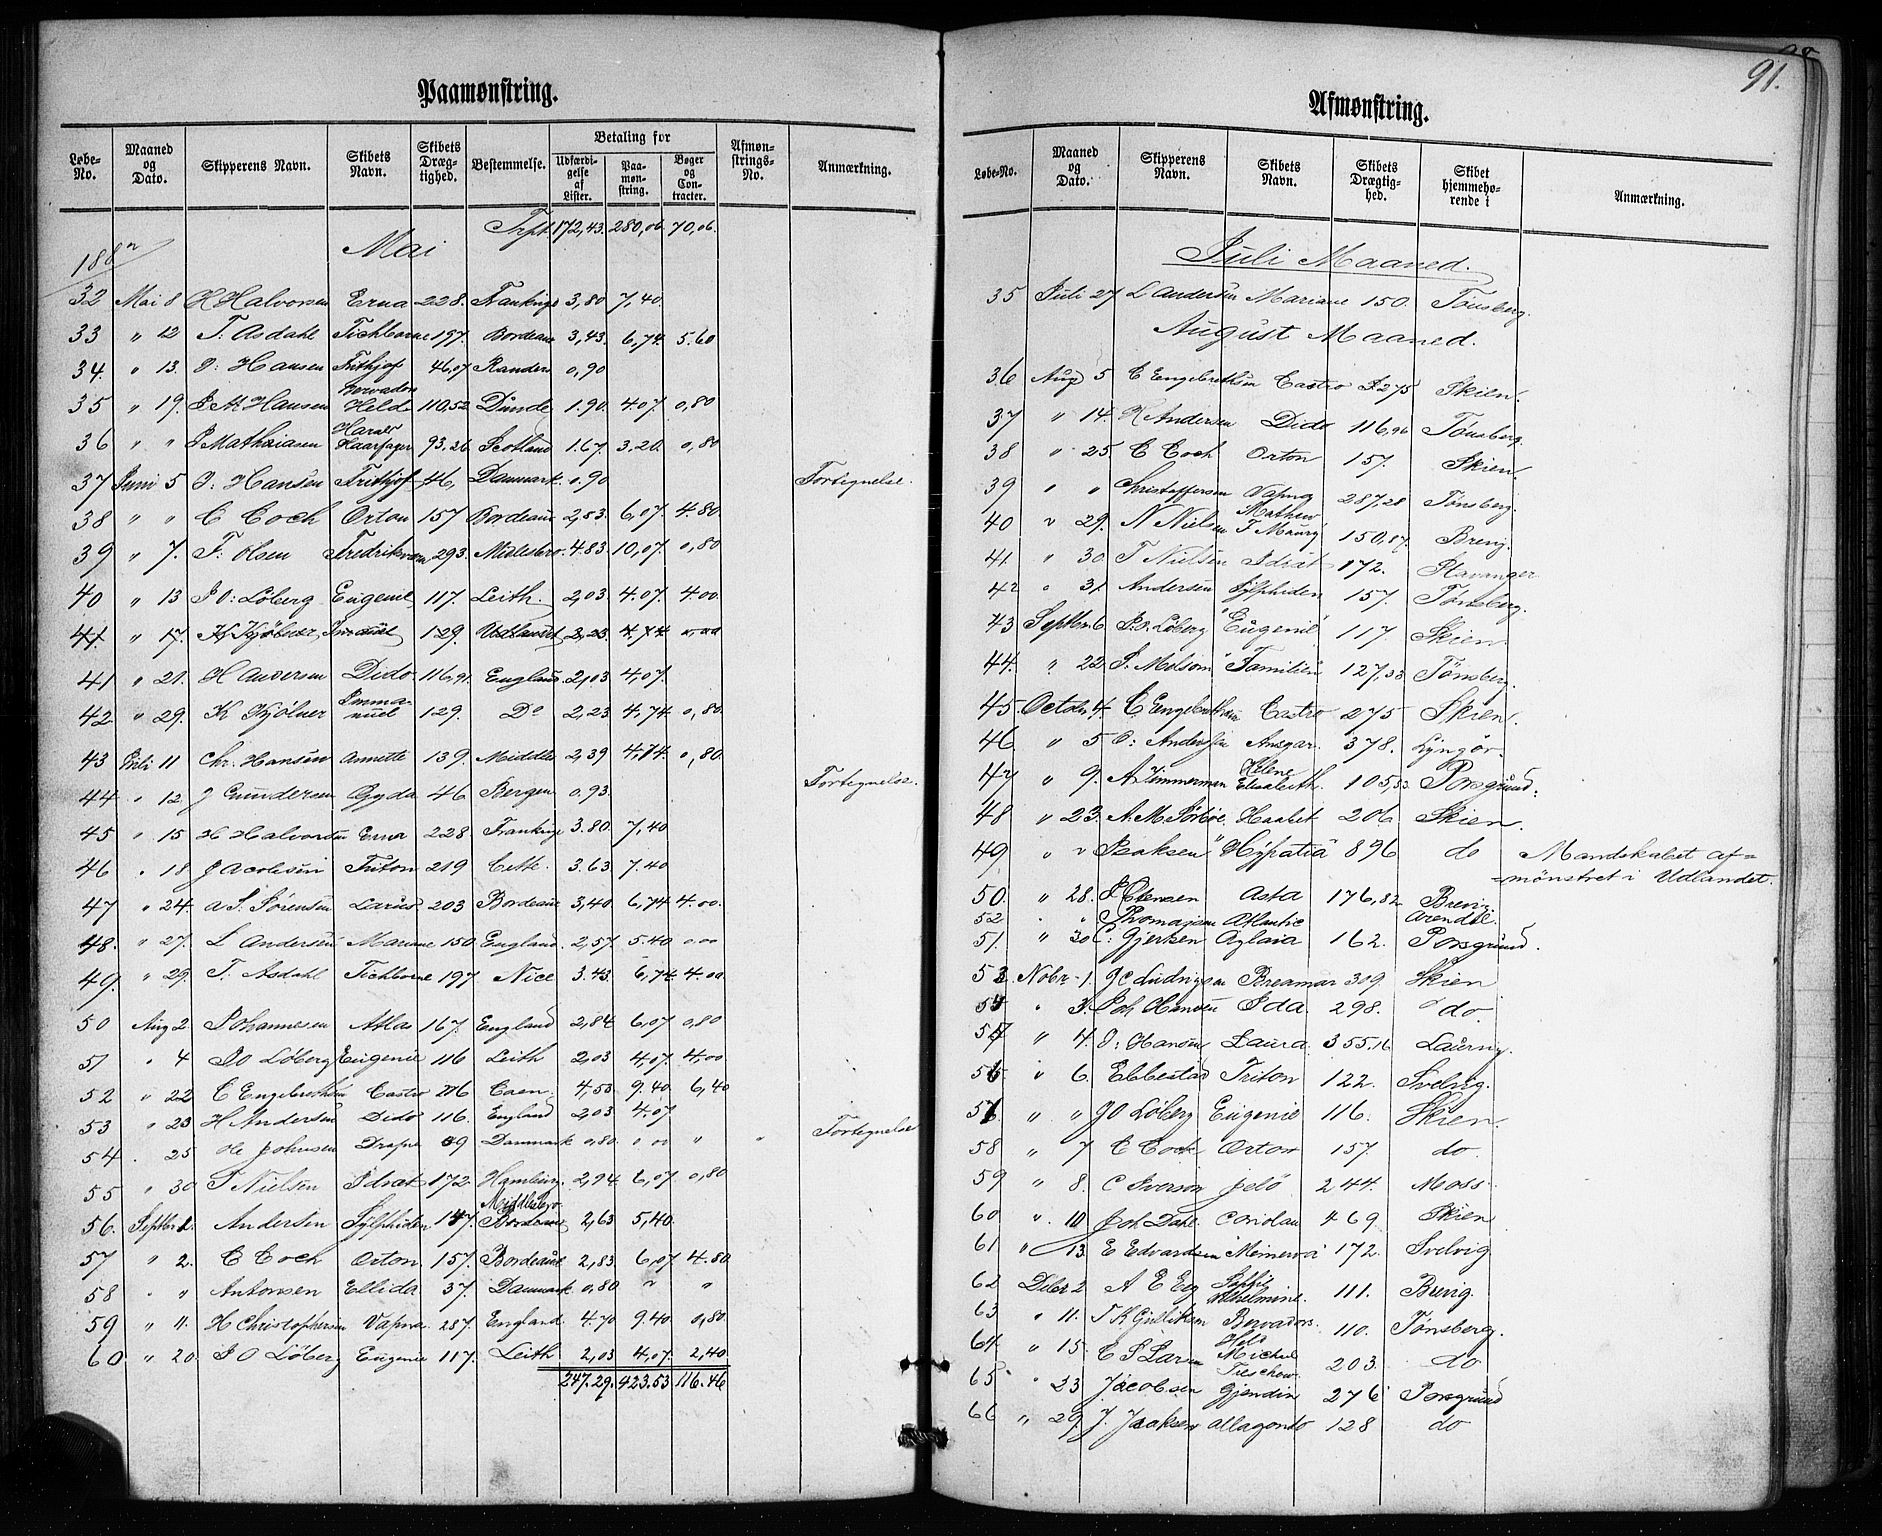 Paamønstring.
Løbe-No. | Maaned og Dato. | Skipperens Navn. | Skibets Navn. | Skibets Dræg-tighed. | Bestemmelse. | Betaling for | Udfærdi-gelse af Lister. | Paa-møn-string. | Bøger og Con-tracter. | Afmøn-strings-No. | Anmærkning.
Trpt 172,43. 280,06 70,06.
Mai
32 Mai 8 H Halvorsen Erna 228. Frankrige 3,80 7,40
33 " 12 T. Asdahl Tichborne 197. Bordeaux 3,43. 6,74. 5.60
34. " 13. O: Hansen Frithjof 46,07 Randers 0,90
35 " 19. P M Hansen Held 110,52 Dunde 1.90. 4.07. 0,80
36 " " P Mathiasen Harald Haarfager 93.26 Scotland 1.67. 3,20. 0,80
37 Juni 5 O: Hansen Frithjof 46, Danmark 0,90 Fortegnelse.
38 " " C Coch Orton 157 Bordeaux 2,83. 6,07. 4.80
39 " 7. F. Olsen Fredriksværn 293. Midlesbro. 4.83. 10,07. 0,80
40 " 13 P O: Löberg Eugenie 117. Leith. 2,03 4.07. 4.00
41 " 17. K Kjølner Imanuel 129. Udlandet 2,23 4,74
41 " 21. H Andersen Dido 116,91. England 2,03 4,07.
42 " 29. K Kjölner Imma-nuel 129. Do 2,23. 4,74 0,80.
43 Juli 11 Chr. Hansen Annette 139. Middles 2,39 4,74. 0,80.
44 " 12. J Gundersen Gyda 46 Bergen 0,93. Fortegnelse.
45 " 15 H Halvorsen Erna 228 Frankrige 3.80. 7,40
46 " 18 Jacobsen Triton 219 Cette. 3.63. 7.40
47 " 24. A. S. Sørensen Larus 203 Bordeaux 3,40 6,74 4.00.
48. " 27. L Andersen Mariane 150. England. 2,57. 5.40 0.00
49. " 29. T. Asdahl Tichborne 197 Nice 3.43. 6,74 4.00
50 Aug 2 Johannesen Atlas 167. England 2,84 6,07 0,80
51 " 4 P O Løberg Eugenie 116 Leith 2,03 4,07. 4,00
52 " 22 C Engebrethsen Castro Caen 4,53 9.40 6,40
53 " 23 H Andersen Dido 116. England 2,03 4.07
54 . 25 He Johnsen Drapne 39 Danmark 0,80. 0 00 " " Fortegnelse
55 " 30 T Nielsen Idræt 172 Hamburg. 2,94 6,07 0,80
56. Septbr 1. Andersen Sylphiden 157. Middlesbro 2,63 5,40.
57 " 2. C Coch Orton 157. Bordeaux 2,83 6,07 4.80
58 . " Antonsen Ellida 37. Danmark 0,80 " "
59 " 11. H Christophersen Vapna 287. England 4.70 9.40 0,80.
60 " 20. P O Löberg Eugenie 117. Leith 2,03 4,07. 2,40
247.29. 423.53 116.46
91.
Afmønstring.
Løbe-No. | Maaned og Dato. | Skipperens Navn. | Skibets Navn. | Skibets Drægtig-hed. | Skibet hjemmehø-rende i | Anmærkning.
Juli Maaned.
35 Juli 27 L Andersen Mariane 150. Tönsberg.
August Maaned.
36 Aug 5 C Engebrethsen Castro 275 Skien.
37 " 14. H Andersen Dido 116,96 Tönsberg.
38 " 25 C Coch Orton 157. Skien.
39 " " Christoffersen Vapna 287,28 Tönsberg.
40 " 29. N Nielsen Mathew F Maury 150,87. Brevig.
41. " 30. T Nielsen Idræt 172. Stavanger
42 " 31. Andersen Sylphiden 157. Tönsberg.
43 Septbr. 6 P. O. Löberg "Eugenie" 117 Skien.
44. " 22 S. Melsom "Familien" 127,33 Tönsberg.
45. Octobr 4. C Engebrethsen Castro 275 Skien.
46 " 5 O: Andersen Ansgar. 378. Lyngör.
47 " 9. A Zimmerman Helene Elisabeth. 105,53 Porsgrund.
48 " 23. A. M. Sörboe. Haabet 206 Skien.
49 " " Isaksen "Hypatia" 896 do Mandskabet af=
=mönstret i Udlandet.
50. " 28. Asta 176,82 Brevig.
52 . " Thomassen Atlantic Arendal.
51 " 30 C: Gjersen Aglaia 162. Porsgrund.
53 Nobr 1. J C Ludvigsen Breamar 309. Skien
" 3. Joh Hansen Ida. 298. do.
54 " 4. O: Hansen Laura 355.16 Laurvig.
" 6. Ebbestad Triton 122. Svelvig.
57 " " J O Løberg Eugenie 116. Skien.
58 " 7 C Coch Orton 157. do.
59 " 8. C Iverson Jelø 244. Moss
60 " 10 Joh Dahl Coriolan 469. Skien
61 " 13. E Edvardsen "Meinerva" 172. Svelvig.
62 Decbr 2 A E Eeg Sophie Wilhelmine. 111. Brevig.
63 " 11. T K Gulliksen Bervadors Held 110. Tönsberg.
64 " 15. C S Larsen Michael Tieschow 203. do
65 " 23 Jacobsen Gjendin 276 Porsgrund
66 " 29. J. Isaksen Allagonto 128 do